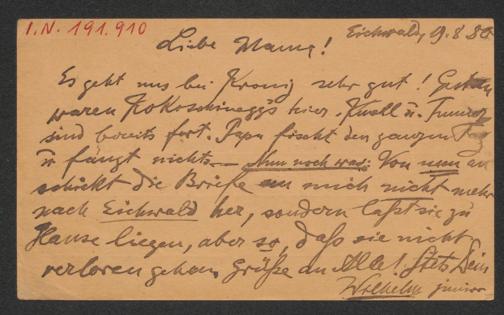 I.N. 191.910
Eichwald, 9.8.80
Liebe Mama!
Es geht uns bei Kronig sehr gut! Gestern
waren Kokoschineggs hier. Knoll u.
sind bereits fort. Papa fischt den ganzen Tag
u fängt nichts. — Nun noch was: Von nun an
schickt die Briefe an mich nicht mehr
nach Eichwald her, sondern laßt sie zu
Hause liegen, aber so, daß sie nicht
verloren gehen. Grüße an Alle! Stets Dein
Wilhelm junior